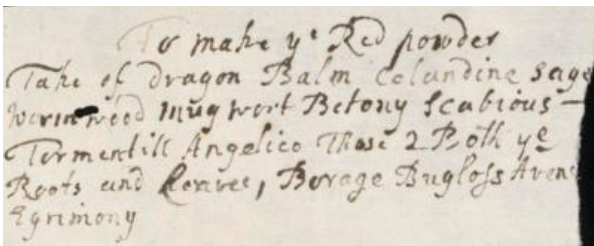 To make yᵉ Red powder
Take of dragon Balm Celandine sage
wormwood mugwort Betony Scabious –
Tormentill Angelico Those 2 Both ye
Roots and Leaves, Borage Bugloss Avens
Egrimony